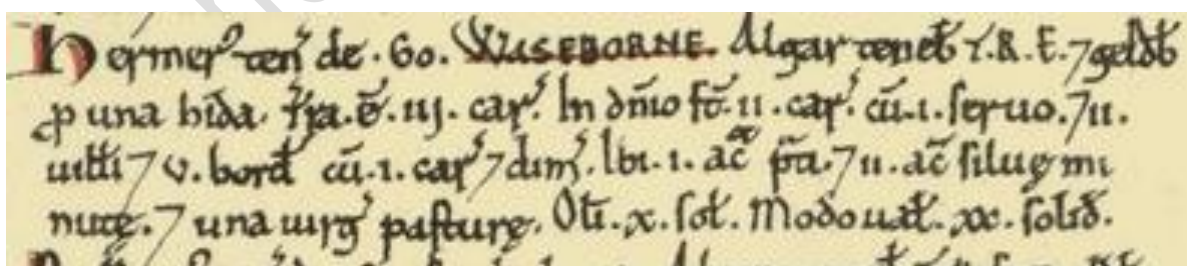 Hermer⁹ ten⁾ de . Eo . WASEBORNE . Algar teneb̄ T.R.E. ⁊ geldb̄
ꝓ una hida. Tr̃a.ē.iij.car⁾. In dn̄io sт̄.ii.car⁾. cū.i.seruo.⁊ ii.
uitti ⁊ v. bord̄ cū.i.car⁾ ⁊ dim⁾. Ibi.i. ac̄ p̃ti.⁊ ii. ac̄ siluę mi
nutę.⁊ una uirg⁾ pasturę. Oli.x.sol̄. Modo ual̄. xx. solid̄.